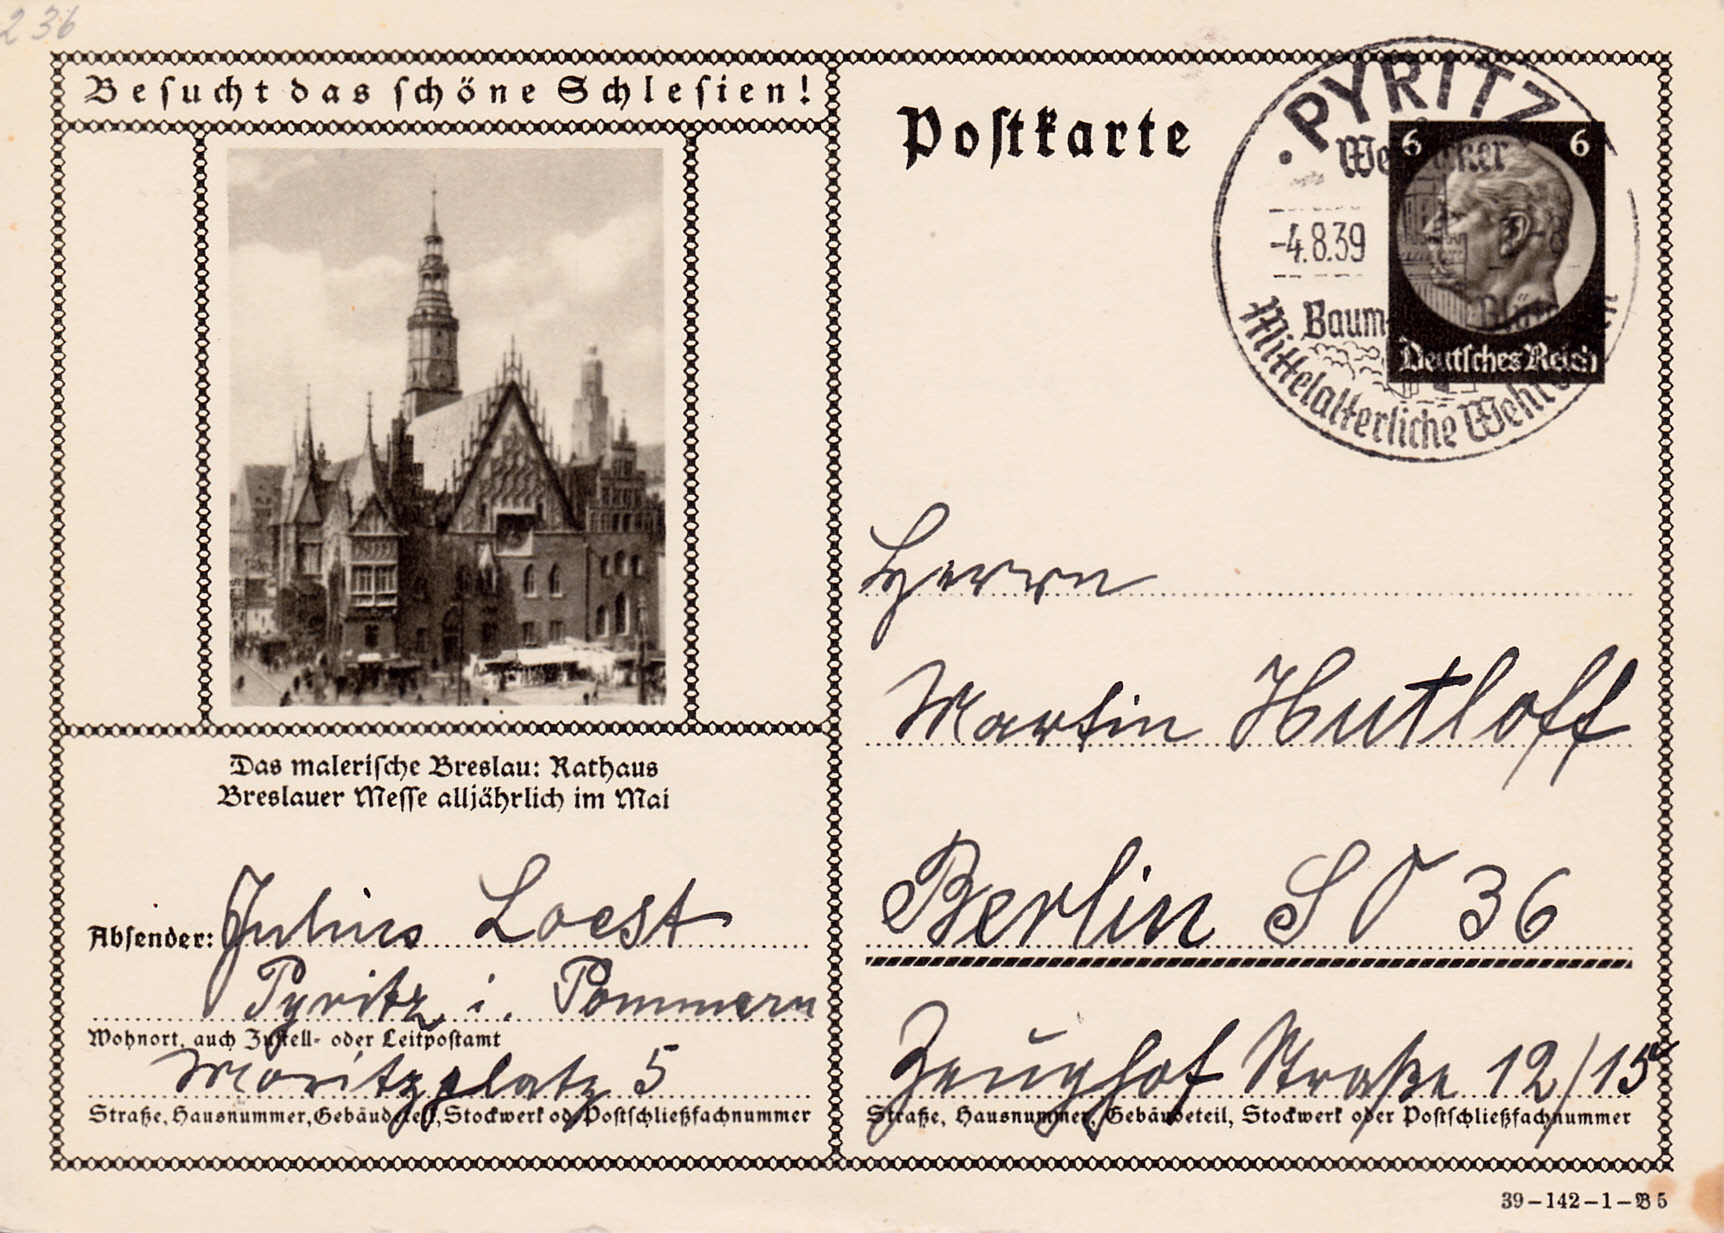 236
Besucht das schöne Schlesien!
Das malerische Breslau: Rathaus
Breslauer Messe alljährlich im Mai
Absender: Julius Loest
Pyritz i. Pommern
Wohnort, auch Zustell- oder Leitpostamt
Moritzplatz 5
Straße, Hausnummer, Gebäudeteil, Stockwerk od. Postschließfachnummer
Postkarte
PYRITZ
-4.8.39
Baum-
Mittelalterliche
6 6
Deutsches Reich
Herrn
Martin Hutloff
Berlin SO 36
Zeughof Straße 12/15
Straße, Hausnummer, Gebäudeteil, Stockwerk oder Postschließfachnummer
39-142-1-B5